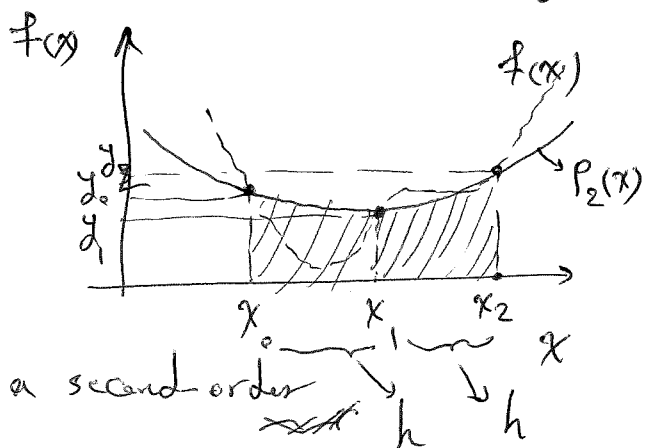 f(x)
f(x)
y2
y0
P2(x)
y1
x0 x1 x2
x
a second order
h h